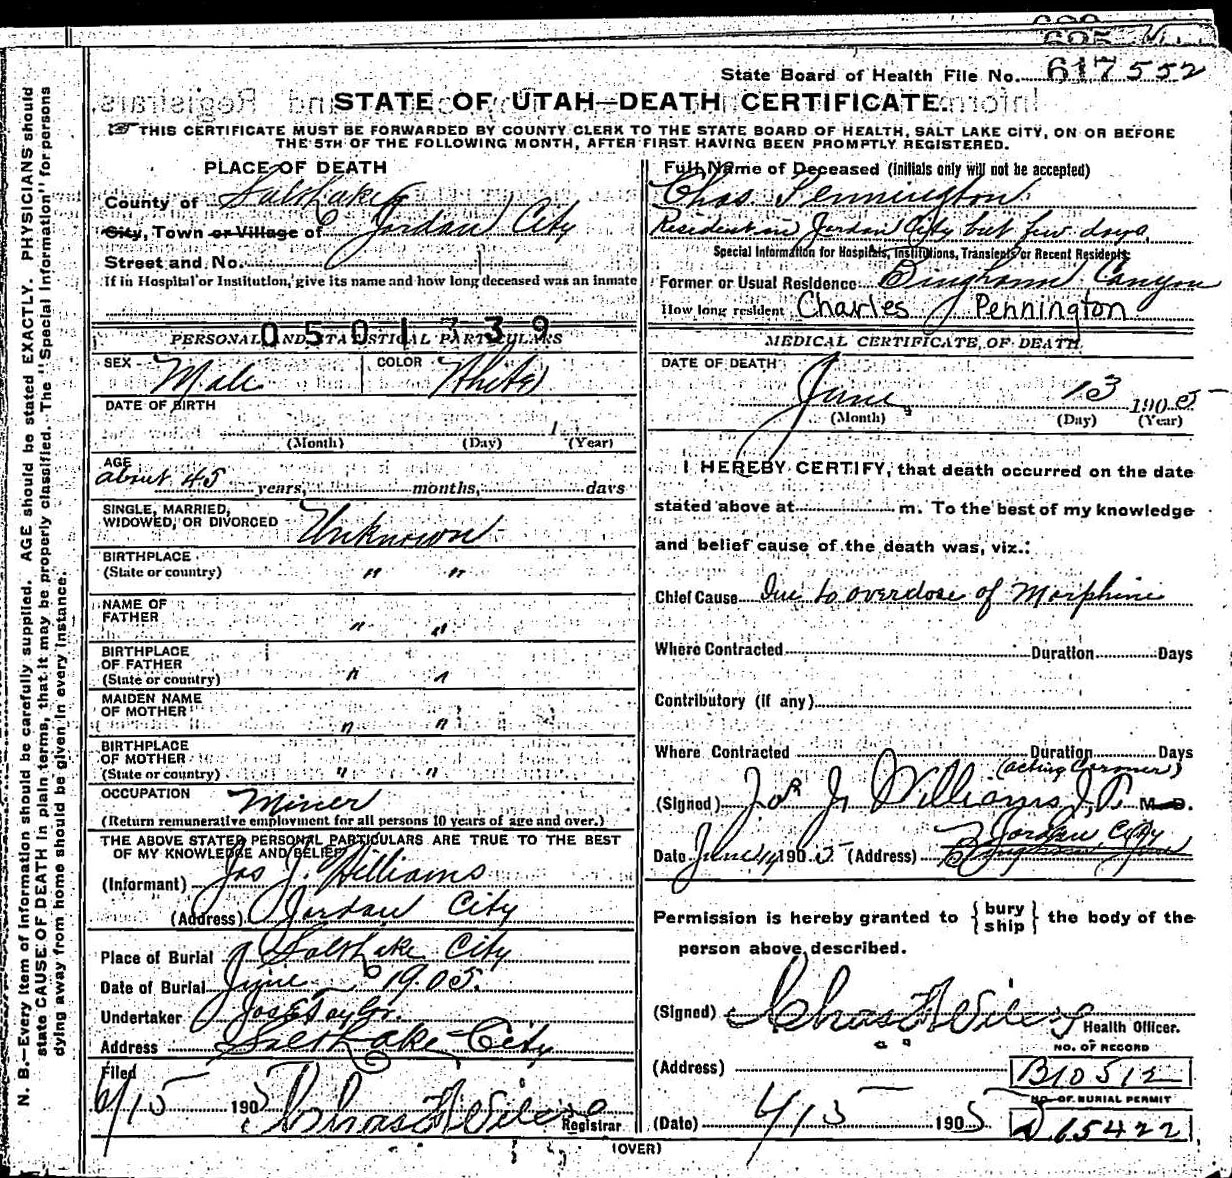 State Board of Health File No. 617552
STATE OF UTAH—DEATH CERTIFICATE.
THIS CERTIFICATE MUST BE FORWARDED BY COUNTY CLERK TO THE STATE BOARD OF HEALTH, SALT LAKE CITY, ON OR BEFORE
THE 5TH OF THE FOLLOWING MONTH, AFTER FIRST HAVING BEEN PROMPTLY REGISTERED.
N. B.—Every item of information should be carefully supplied. AGE should be stated EXACTLY. PHYSICIANS should
state CAUSE OF DEATH in plain terms, that it may be properly classified. The "Special Information" for persons
dying away from home should be given in every instance.
PLACE OF DEATH
County of Salt Lake
City, Town or Village of Jordan City
Street and No.
If in Hospital or Institution, give its name and how long deceased was an inmate
0501739
PERSONAL AND STATISTICAL PARTICULARS
SEX Male COLOR White
DATE OF BIRTH
(Month) (Day) 1 (Year)
AGE
about 45 years, months, days
SINGLE, MARRIED,
WIDOWED, OR DIVORCED Unknown
BIRTHPLACE
(State or country) " "
NAME OF
FATHER " "
BIRTHPLACE
OF FATHER
(State or country) " "
MAIDEN NAME
OF MOTHER " "
BIRTHPLACE
OF MOTHER
(State or country) " "
OCCUPATION Miner
(Return remunerative employment for all persons 10 years of age and over.)
THE ABOVE STATED PERSONAL PARTICULARS ARE TRUE TO THE BEST
OF MY KNOWLEDGE AND BELIEF
(Informant) Jas J. Williams
(Address) Jordan City
Place of Burial Salt Lake City
Date of Burial June 1905.
Undertaker Jos E Taylor.
Address Salt Lake City
Filed
6/15 1905 Chas F Wilcox Registrar
Full Name of Deceased (Initials only will not be accepted)
Chas Pennington
Resident in Jordan City but few days
Special Information for Hospitals, Institutions, Transients or Recent Residents
Former or Usual Residence Bingham Canyon
How long resident Charles Pennington
MEDICAL CERTIFICATE OF DEATH
DATE OF DEATH
June 13 1905
(Month) (Day) (Year)
I HEREBY CERTIFY, that death occurred on the date
stated above at m. To the best of my knowledge
and belief cause of the death was, viz.:
Chief Cause Due to overdose of Morphine
Where Contracted Duration Days
Contributory (if any)
Where Contracted Duration Days
(acting Coroner)
(Signed) Jas J. Williams J.P. M. D.
Jordan City
Date June 14 1905 (Address)
Permission is hereby granted to {bury
ship} the body of the
person above described.
(Signed) Chas F Wilcox
Health Officer.
NO. OF RECORD
(Address) B10512
NO. OF BURIAL PERMIT
(Date) 6/15 1905 D 65422
(OVER)